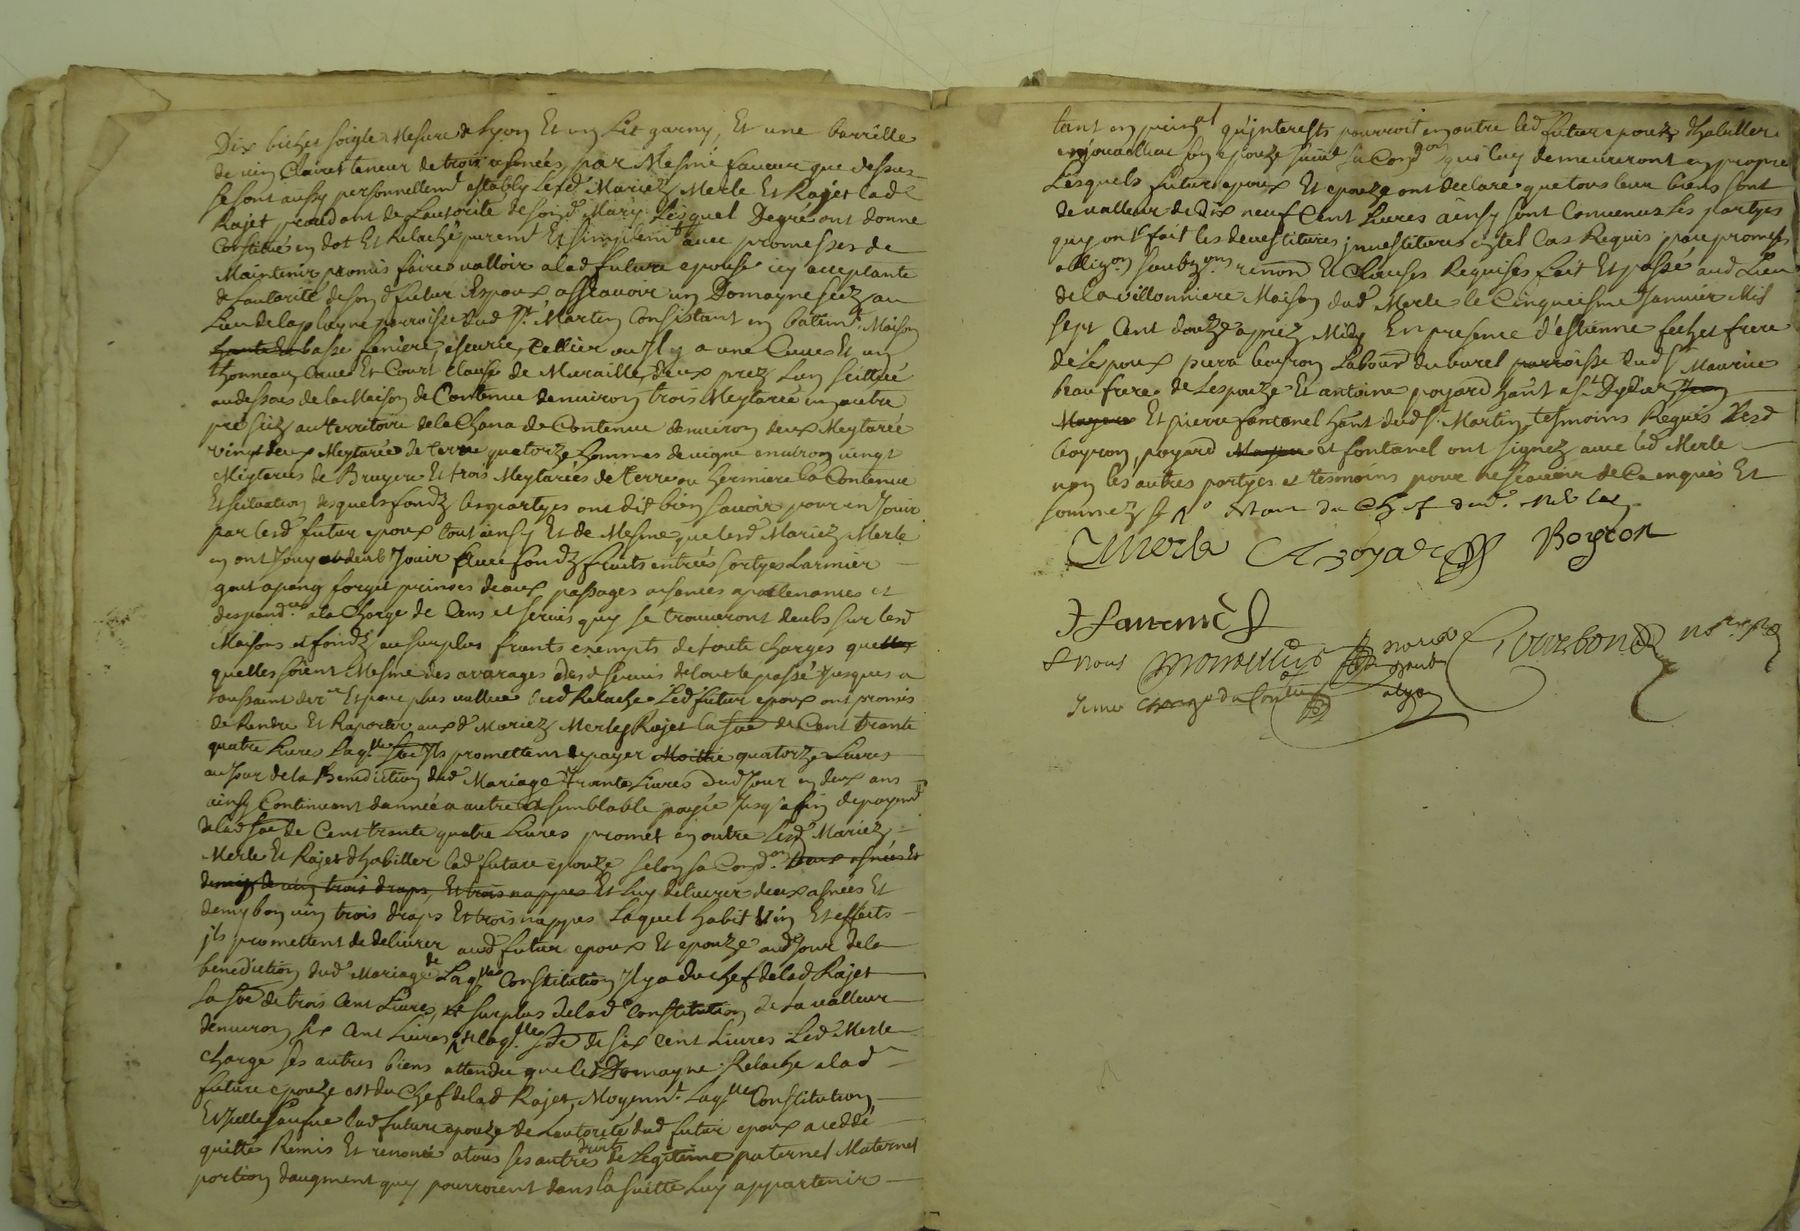 Dix bichet soigle Mesure de Lyon Et un Lit garny, Et une barrille
de vin Clairet teneur de trois asnées, par Mesme faveur que dessus
se sont aussy personnellemt estably lesd Mariez Merle Et Rajet lade
Rajet procedant de Lautorité de son d Mary Lesquel Degré ont donné
Constitué en dot Et Relaché puremt Et simplemt avec promesses de
Maintenir promis faire valloir a lad future epouse icy acceptante
de Lautorité de son d futur Espoux assavoir un Domayne scitz au
Lieu de la playne parroisse dud St. Martin Consistant en batimt. Maison
haute Et basse feniere, escurie, Cellier ou Il y a une Cuve Et un
thonneau, Cave Et Court Clause de Muraille, deux prez Lun scittué
au dessous de la Maison de Contenue denviron trois Meytarée un autre
pré scitz au territoire de la Chana de Contenue denviron deux Meytarée
vingt deux Meytarée de terre quatorze hommes de vigne environ vingt
Meytarées de Bruyere Et trois Meytarées de terre ou hermiere la Contenue
Et scituation desquels fondz les partyes ont dit bien savoir pour en Jouir
par lesd futur epoux tout ainsy Et de Mesme que lesd Mariez Merle
en ont Jouy ou deub Jouir avec fondz fruits entrées sortyes Larmier
gout apang forget prinses deaux passages aisances apartenances et
despandces. a la Charge de Cens et servis quy se trouveront deubs sur lesd
Maisons et fondz au surplus francs exempts de toute charges quelles
quelles soient Mesme des ararages desd servis de tout le passé Jusques a
toussaint der. Et pour plus vallue dud Relache Led futur epoux ont promis
de Rendre Et Raporter auxd Mariez Merle Rajet la soe de Cent trante
quatre Livres Laqlle soe Ils promettent de payer Moittié quatorze Livres
au Jour de la Benediction dud Mariage Trante Livres dud Jour en deux ans
ainsy Continuant dannée a autre et semblable payée Jusqu'a fin de payemt
de lad soe de Cent trante quatre Livres promet en outre Lesd Mariez
Merle Et Rajet dhabiller lad future epouze selon sa Condon deux asnées Et
demy de vin trois draps Et trois nappes Et Luy delivrer deux asnées Et
demy bon vin trois draps Et trois nappes Laquel habit Vin Et effects
ils promettent de delivrer aud futur epoux Et epouze aud Jour de la
benediction dud Mariage de Laqlle Constitution Il y a du chef de lad Rajet
La soe de trois Cent Livres, Et surplus de lad Constitution de la valleur
denviron six Cent Livres de laqlle. soe de six Cent Livres Led Merle
charge ses autres biens attendu que led Domayne Relache a lad
future epouze est du Chef de lad Rajet, Moyennt. Laqlle Constitution
Et Icelle sauve Lad future epouze de Lautorité dud futur epoux a ceddé
quitté Remis Et renoncé a tous ses autres droits de Legitime paternel Maternel
portion daugment quy pourroient dans la suitte Luy appartenir
tant en prinal qu'interests pourroit en outre led futur epouz dhabiller
enjouailler son epouze suivt sa Condon qui luy demeureront en propre
Lesquels futur epoux Et epouze ont declaré que tous leur biens sont
de valleur de Dix neuf Cent Livres ainsy sont Convenus les partyes
quy ont fait les devestitures, investitures en tel Cas Requis par promesses
obligon soubzons renon Et Clauses Requises fait Et passé aud Lieu
de la villonniere Maison dud Merle le Cinquiesme Janvier Mil
sept Cent douze aprez Midy En presence d'estienne fechet frere
de Lespoux pierre boyron Labourd du burel parroisse dud St Maurice
beau frere de Lespouze Et antoine poyard habt a St Dydier Jean
Mayere Et pierre fontanel habt dud St. Martin, tesmoins Requis Lesd
boyron, poyard Mayere et fontanel ont signez avec led Merle
non les autres partyes et tesmoins pour ne scavoir de Ce enquis Et
sommez
Merle Apoyard Boyron
Fontanel